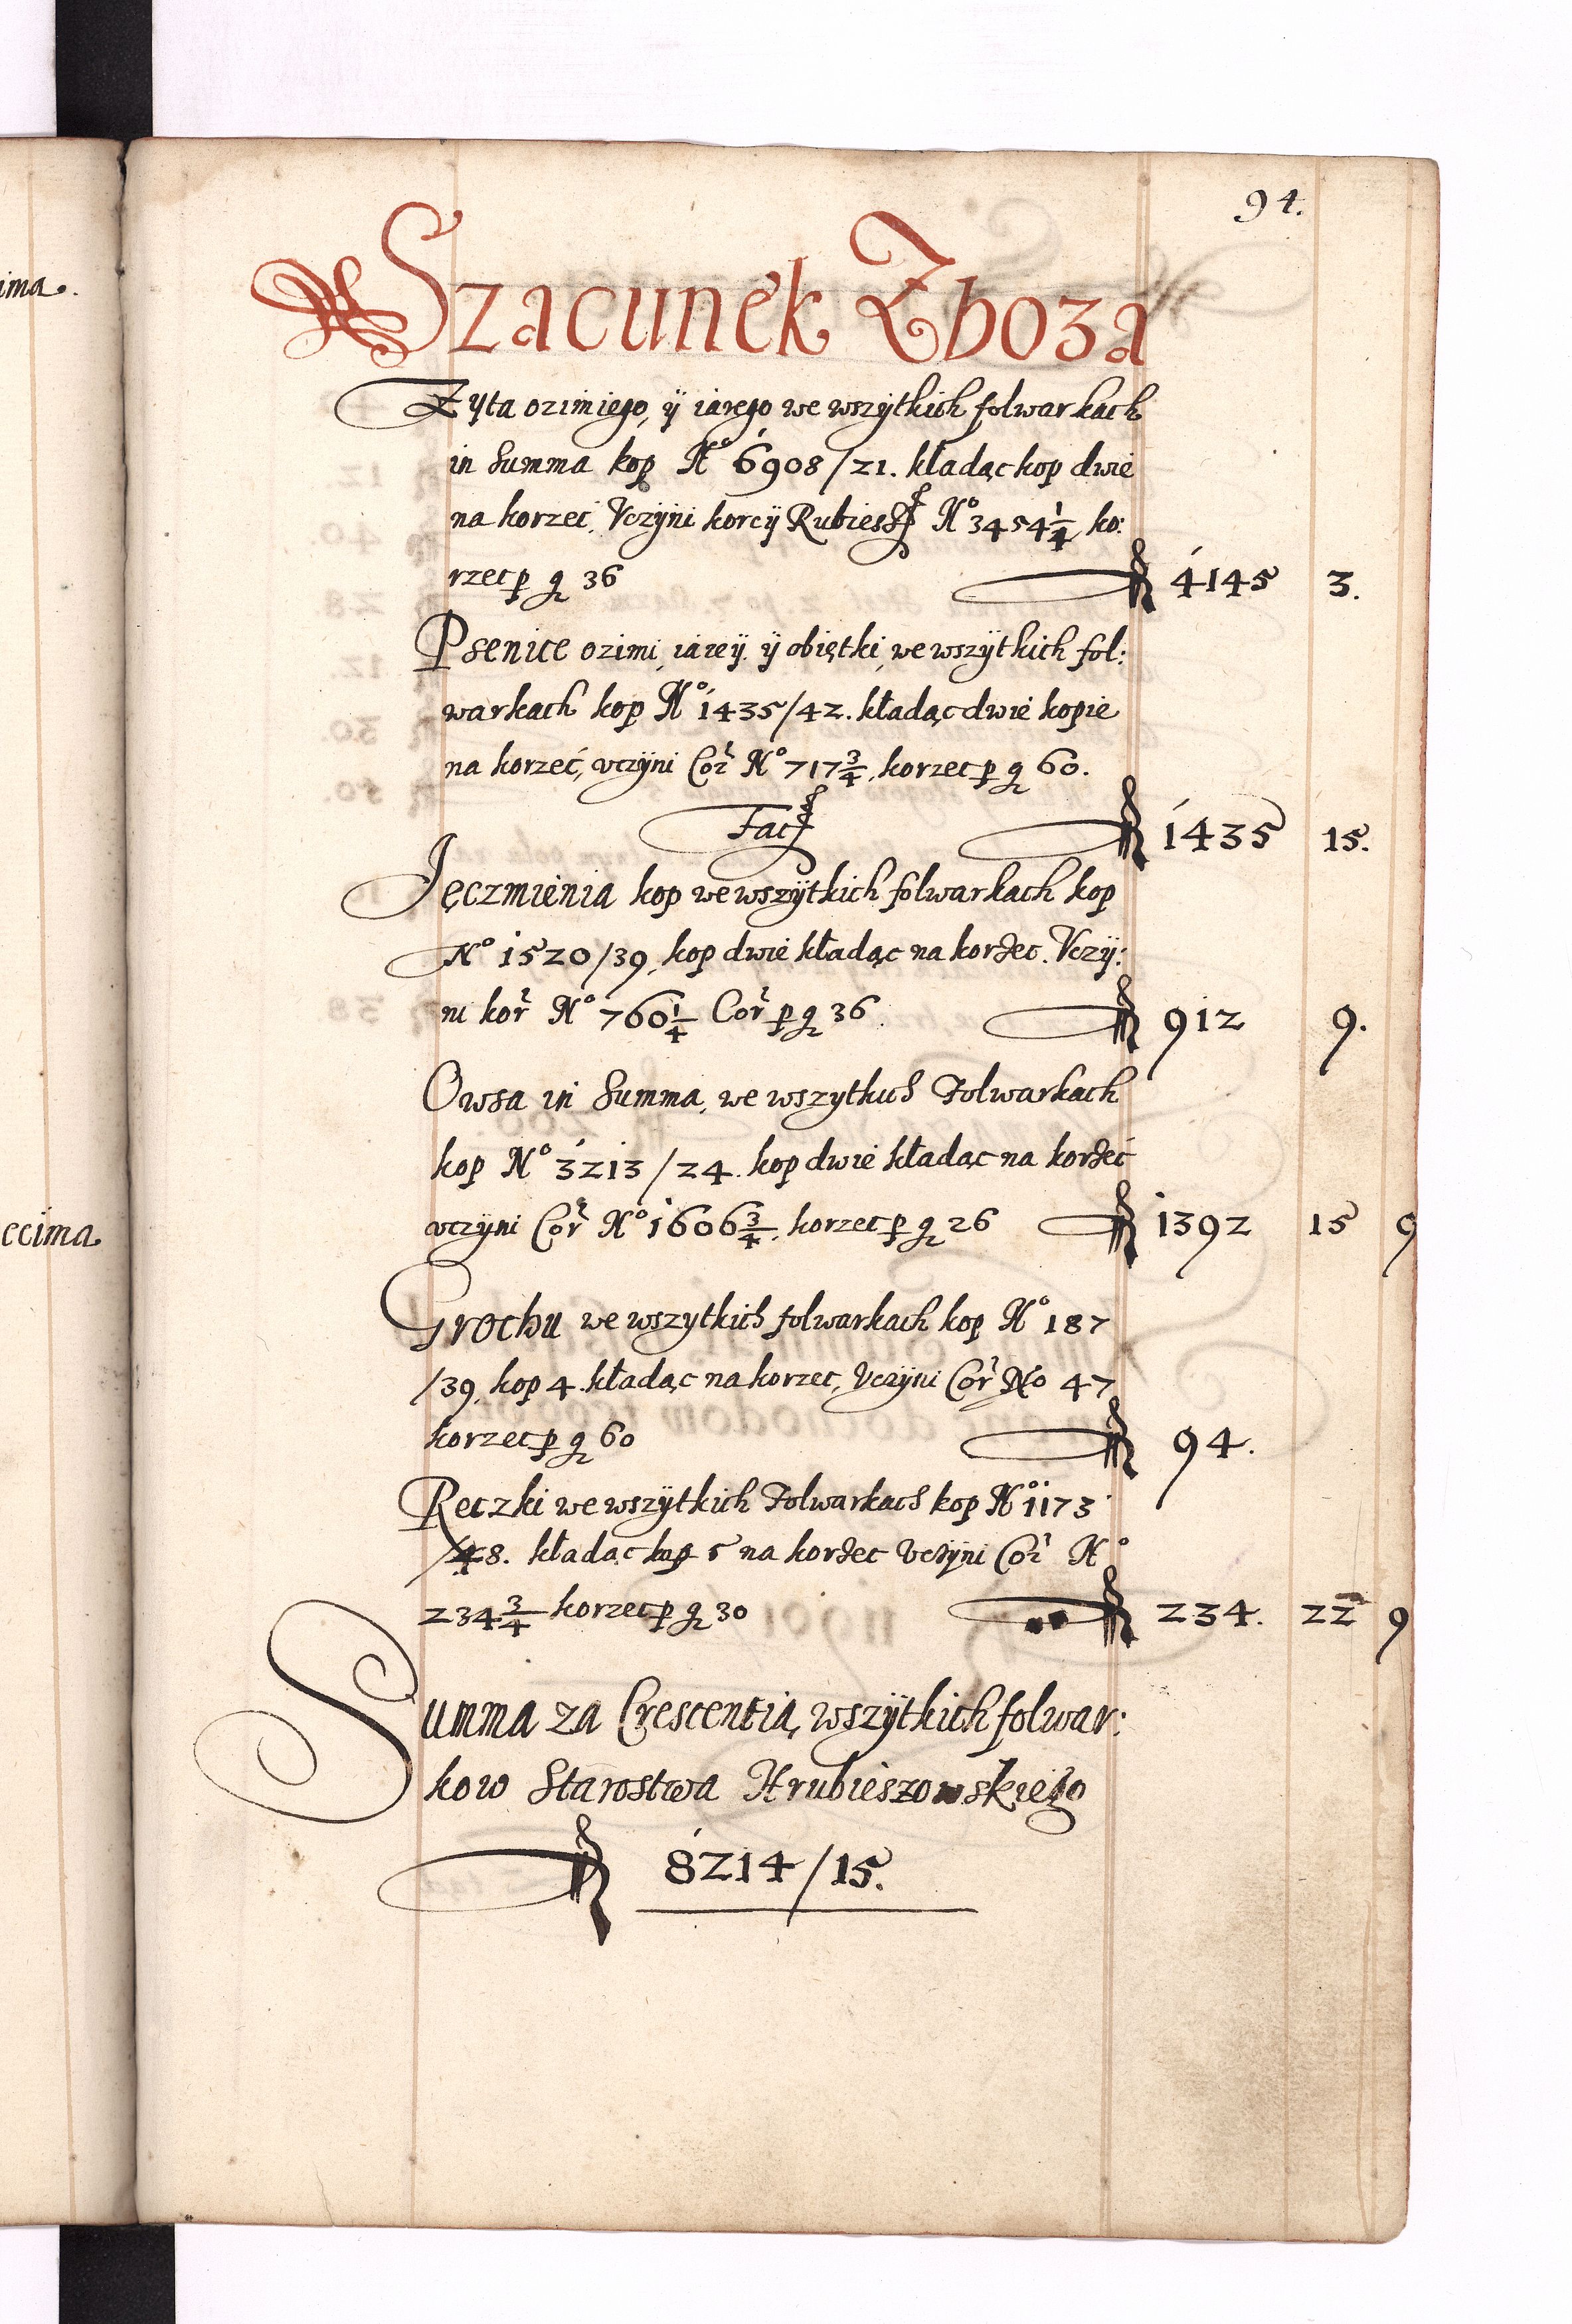 94.
Szacunek Zboza
Zyta ozimiego, ÿ iarego we wszÿtkich folwarkach
in Summa kop Nº 6908/21. kładąc kop dwie
na korzec, Vczÿni korcÿ Rubiesz Nº 3454 1/4, ko:
rzec p gr 36 fl 4145 3.
Psenice ozimi, iareÿ ÿ obiętki, we wszÿtkich fol:
warkach kop Nº 1435/42. kładąc dwie kopie
na korzec, vczÿni Cor Nº 717 3/4, korzec p gr 60.
Fac fl 1435 15.
Jęczmienia kop we wszÿtkich folwarkach kop
Nº 1520/39, kop dwie kładąc na korzec. Vczÿ:
ni kor Nº 760 1/4 Cor p gr 36 fl 912 9.
Owsa in Summa, we wszytkich Folwarkach
kop Nº 3213/24. kop dwie kładąc na korzec
vczÿni Cor Nº 1606 3/4, korzec p gr 26 fl 1392 15 9
Grochu we wszytkich folwarkach kop Nº 187
/39, kop 4 kładąc na korzec, Vczÿni Cor No 47
korzec p gr 60 fl 94.
Reczki we wszÿtkich Folwarkach kop Nº 1173
/48. kładąc kop 5 na korzec Vczÿni Cor Nº
234 3/4 korzec p gr 30 fl 234. 22 9
Summa za Crescentią, wszÿtkich folwar:
kow Starostwa Hrubieszowskiego
fl 8214/15.
ecima